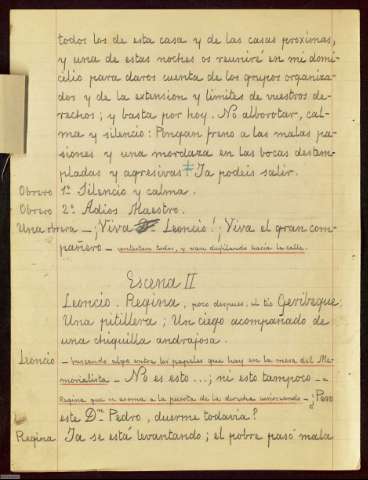 todos los de esta casa y de las casas proximas,
y una de estas noches os reuniré en mi domi-
cilio para daros cuenta de los grupos organiza-
dos y de la extension y limites de vuestros de-
rechos; y basta por hoy. No alborotar, cal-
ma y silencio: Pongan freno a las malas pa-
siones y una mordaza en las bocas destem-
pladas y agresivas. Ya podeis salir.
Obrero 1º Silencio y calma.
Obrero 2º Adios Maestro.
Una obrera - ¡Viva Leoncio!; Viva el gran com-
pañero - contestan todos, y van desfilando hacia la calle.
Escena II
Leoncio. Regina, poco despues, el tio Geribeque;
Una pitillera; Un ciego acompañado de
una chiquilla andrajosa.
Leoncio - buscando algo entre los papeles que hay en la mesa del Me-
morialista - No es esto...; ni esto tampoco -
Regina que se asoma a la puerta de la derecha - ¿Pero
este Dn Pedro, duerme todavia?
Regina Ya se está levantando; el pobre pasó mala